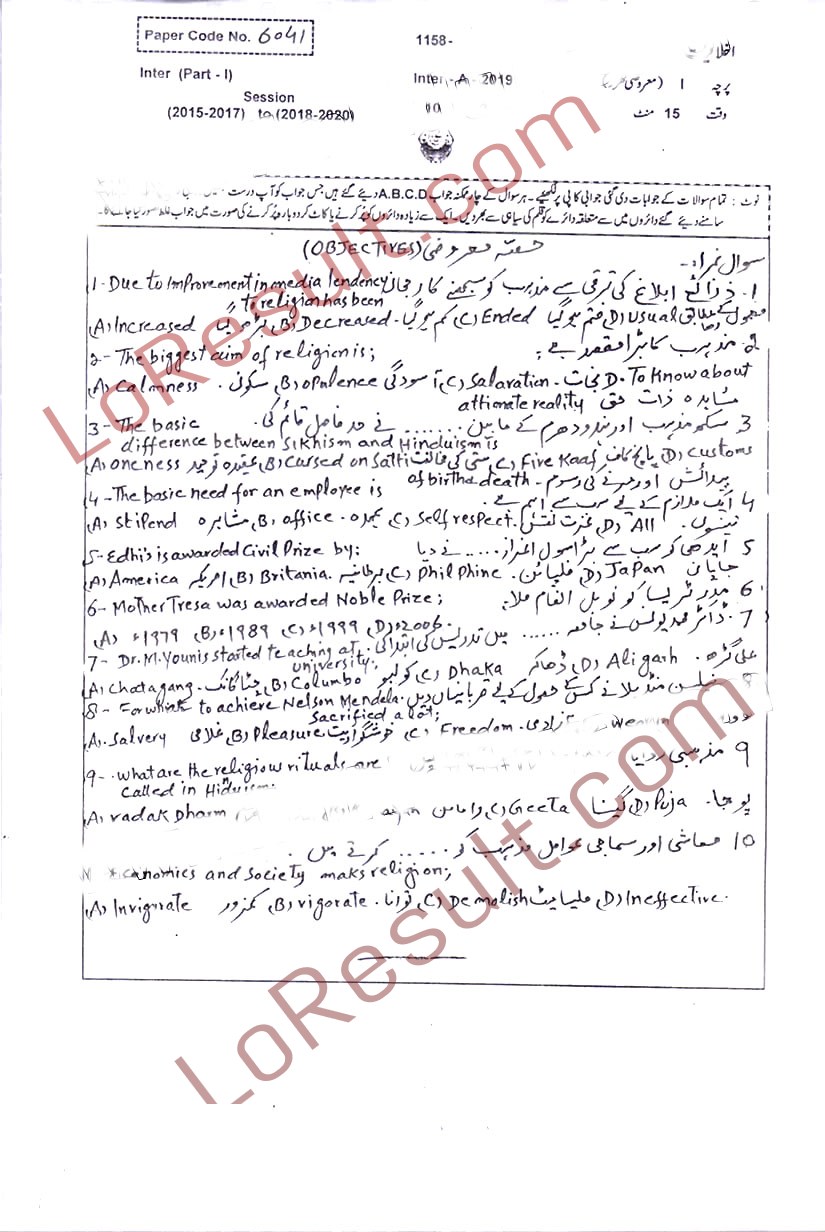 Paper Code No. 6041
1158-
Inter (Part - I)
Inter - A - 2019
پرچہ I (معروضی
Session
(2015-2017) to (2018-2020)
وقت 15 منٹ
نوٹ : تمام سوالات کے جوابات دی گئی جوابی کاپی پر لکھیے - ہر سوال کے چار ممکنہ جواب A.B.C.D دیئے گئے ہیں جس جواب کو آپ درست
سامنے دیئے گئے دائروں میں سے متعلقہ دائرے کو قلم کی سیاہی سے بھر دیں - ایک سے زیادہ دائروں کو پُر کرنے یا کاٹ کر دوبارہ پُر کرنے کی صورت میں جواب غلط تصور کیا جائے گا -
حصہ معروضی (OBJECTIVES)
سوال نمبر 1 -
1- Due to improvement in media tendency
1. ذرائع ابلاغ کی ترقی سے مذہب کو سمجھنے کا رجحان
to religion has been
(A) Increased بڑھ گیا (B) Decreased - کم ہو گیا (C) Ended ختم ہو گیا (D) Usual معمول کے مطابق رہا
2. مذہب کا بڑا مقصد ہے :
2- The biggest aim of religion is;
(A) Calmness - سکون (B) opulence آسودگی (C) Salaration - نجات D. To Know about
attimate reality مشاہدہ ذات حق
3 سکھ مذہب اور ہندو دھرم کے مابین ....... نے حد فاصل قائم کی .
3- The basic
difference between Sikhism and Hinduism is
(A) oneness عقیدہ توحید (B) Cursed on Satti ستی کی مخالفت (C) Five Kaaf پانچ کاف (D) Customs
of birth & death - پیدائش اور مرنے کی رسوم
4- The basic need for an employee is
4 ایک ملازم کے لیے سب سے اہم ہے
(A) Stipend مشاہرہ (B) office - عہدہ (C) Self respect. عزت نفس (D) All تینوں .
5- Edhi's is awarded Civil Prize by:
5 ایدھی کو سب سے بڑا سول اعزاز ...... نے دیا
(A) America امریکہ (B) Britania. برطانیہ (C) Phil Phine. فلپائن (D) Japan جاپان
6- Mother Tresa was awarded Noble Prize;
6 مدر ٹریسا کو نوبل انعام ملا .
(A) ء1979 (B) ء1989 (C) ء1999 (D) ء2006
7. ڈاکٹر محمد یونس نے جامعہ ...... میں تدریس کی ابتدا کی
7- Dr. M. Younis started teaching at
university:
(A) Chatagang. چٹاگانگ (B) Columbo کولمبو (C) Dhaka ڈھاکہ (D) Aligarh. علی گڑھ
نیلسن منڈیلا نے کس کے حصول کے لیے قربانیاں دیں
8- For which to achieve Nelson Mendela
sacrified a lot;
(A). Salvery غلامی (B) Pleasure خوشگواریت (C) Freedom - آزادی Women
9 مذہبی
9- what are the religious rituals are
called in Hiduism
(A) Vadak Dharm (C) Geeta گیتا (D) Puja پوجا
10 معاشی اور سماجی عوامل مذہب کو ...... کرتے ہیں .
and Society maks religion;
(A) Invigurate کمزور (B) vigorate. توانا (C) Demolish ملیامیٹ (D) Ineffective.
LoResult.com
LoResult.com